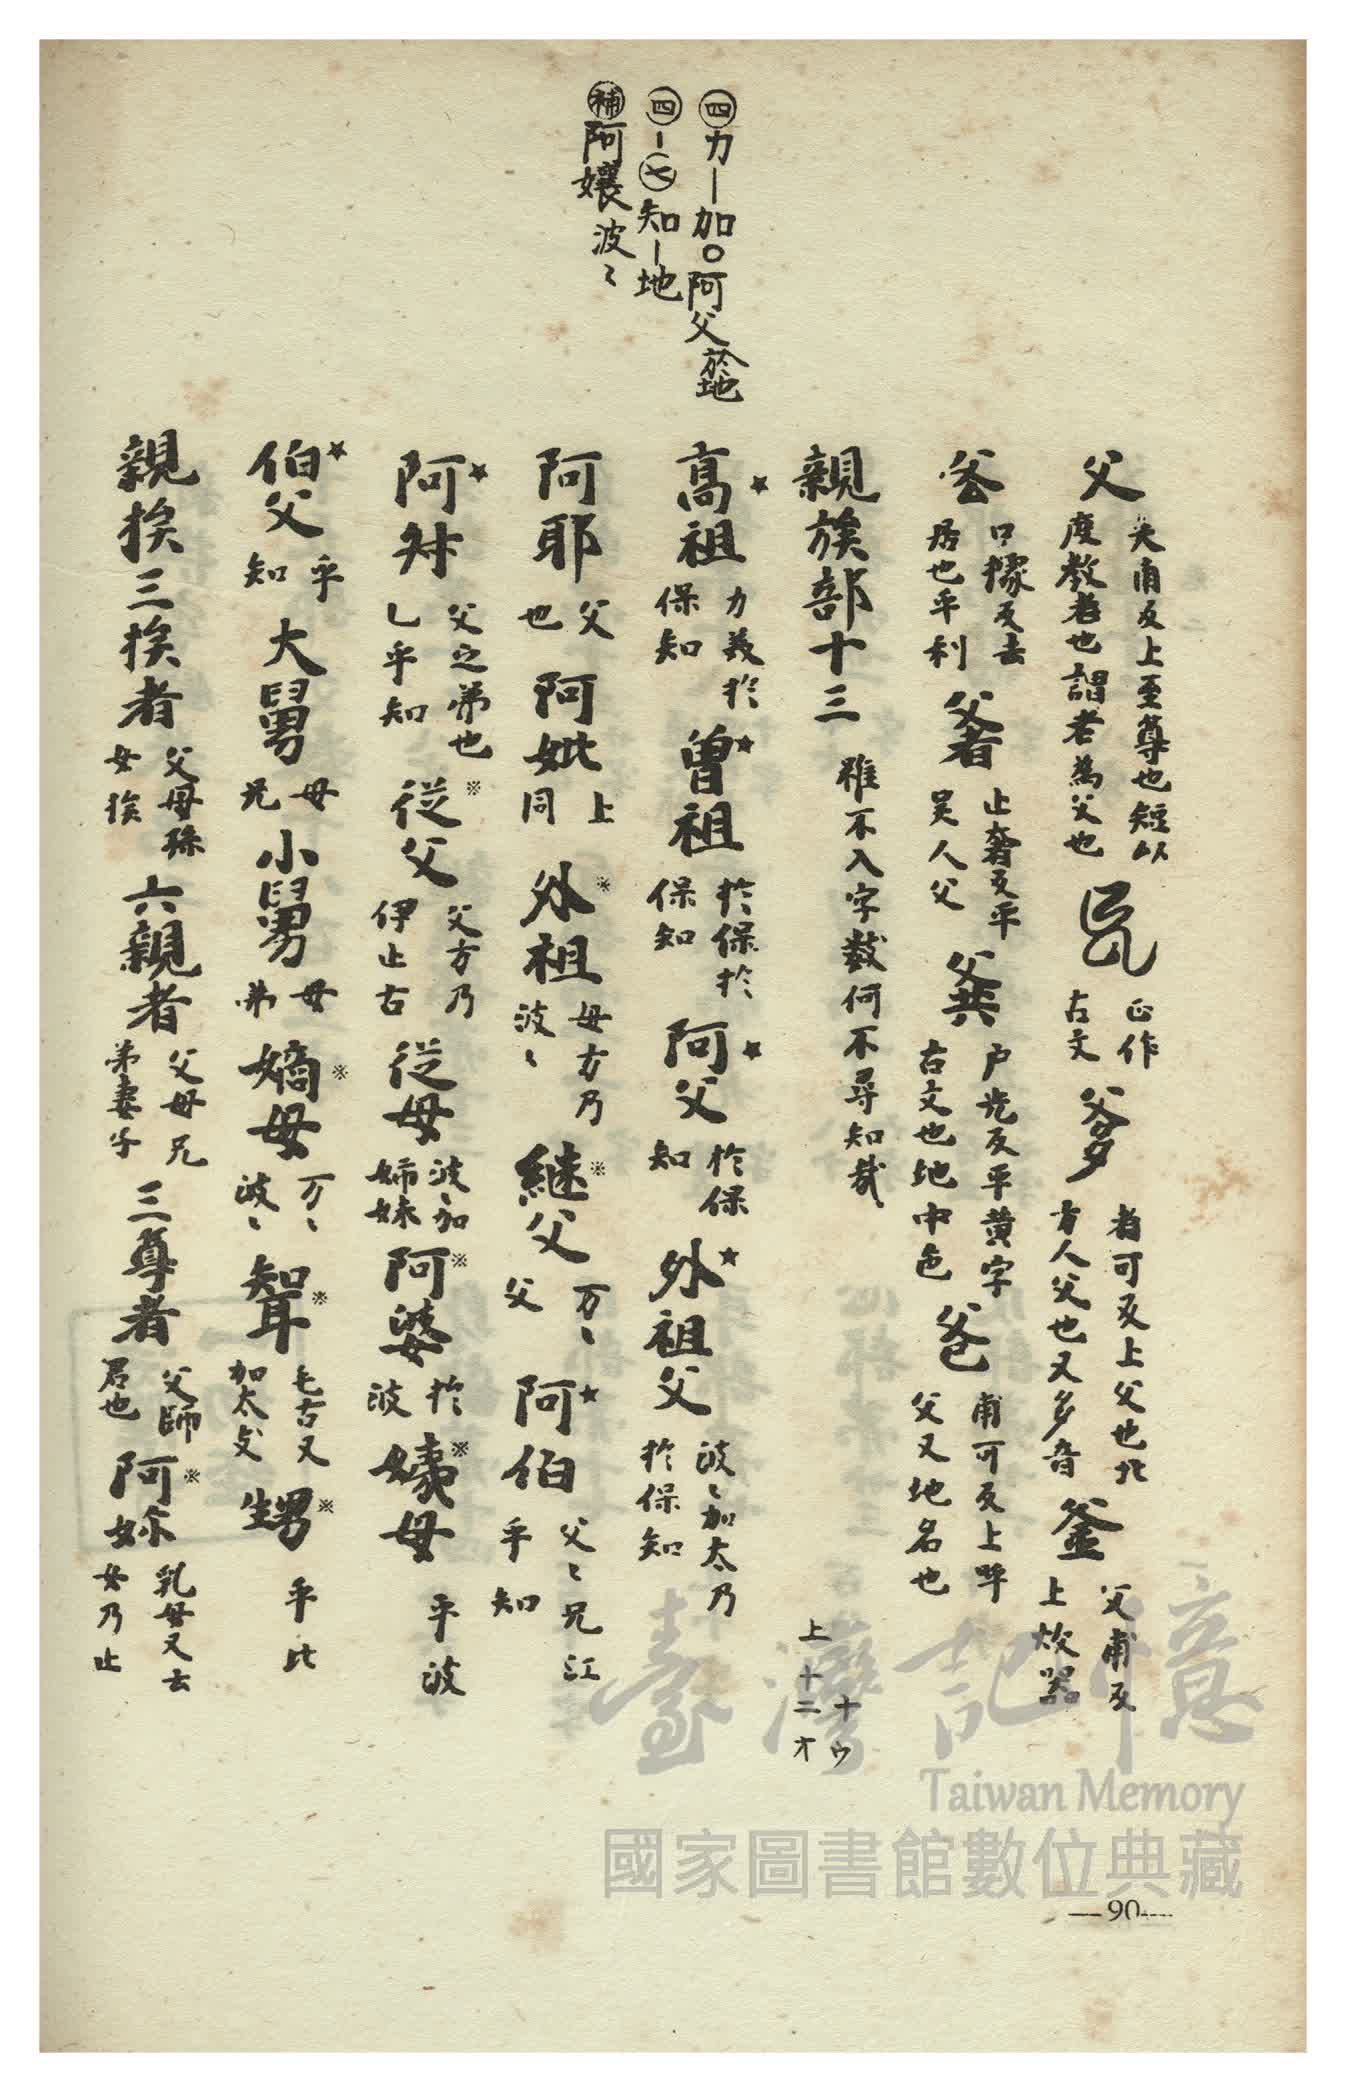 ㊃力—加○阿父於地
㊃—㊆知—地
㊝阿孃波〻
父 夫甫反上至尊也短以度教者也謂老為父也 正作古文 爹 者可反上父也北方人父也又多音 釜 父甫反上炊器
口據反去居也平利 爺 止奢反平吳人父 戶光反平黄字古文也地中色 爸 甫可反上呼父又地名也
親族部十三 雖不入字數何不尋知哉
高祖 力義於保知 曾祖 於保於保知 阿父 於保知 外祖父 波〻加太乃於保知
阿耶 父也 阿妣 上同 外祖 母方乃波〻 継父 万〻父 阿伯 父〻兄江乎知
阿叔 父之弟也乙乎知 従父 父方乃伊止古 従母 波〻加姉妹 阿婆 於波 姨母 乎波
伯父 乎知 大舅 母兄 小舅 母弟 嫡母 万〻波〻 聟 毛古又加太支 甥 乎比
親族三族者 父母孫女族 六親者 父母兄弟妻子 三尊者 父師君也 阿妳 乳母又云女乃止
十ウ
上十二オ
—90—
臺灣記憶
Taiwan Memory
國家圖書館數位典藏